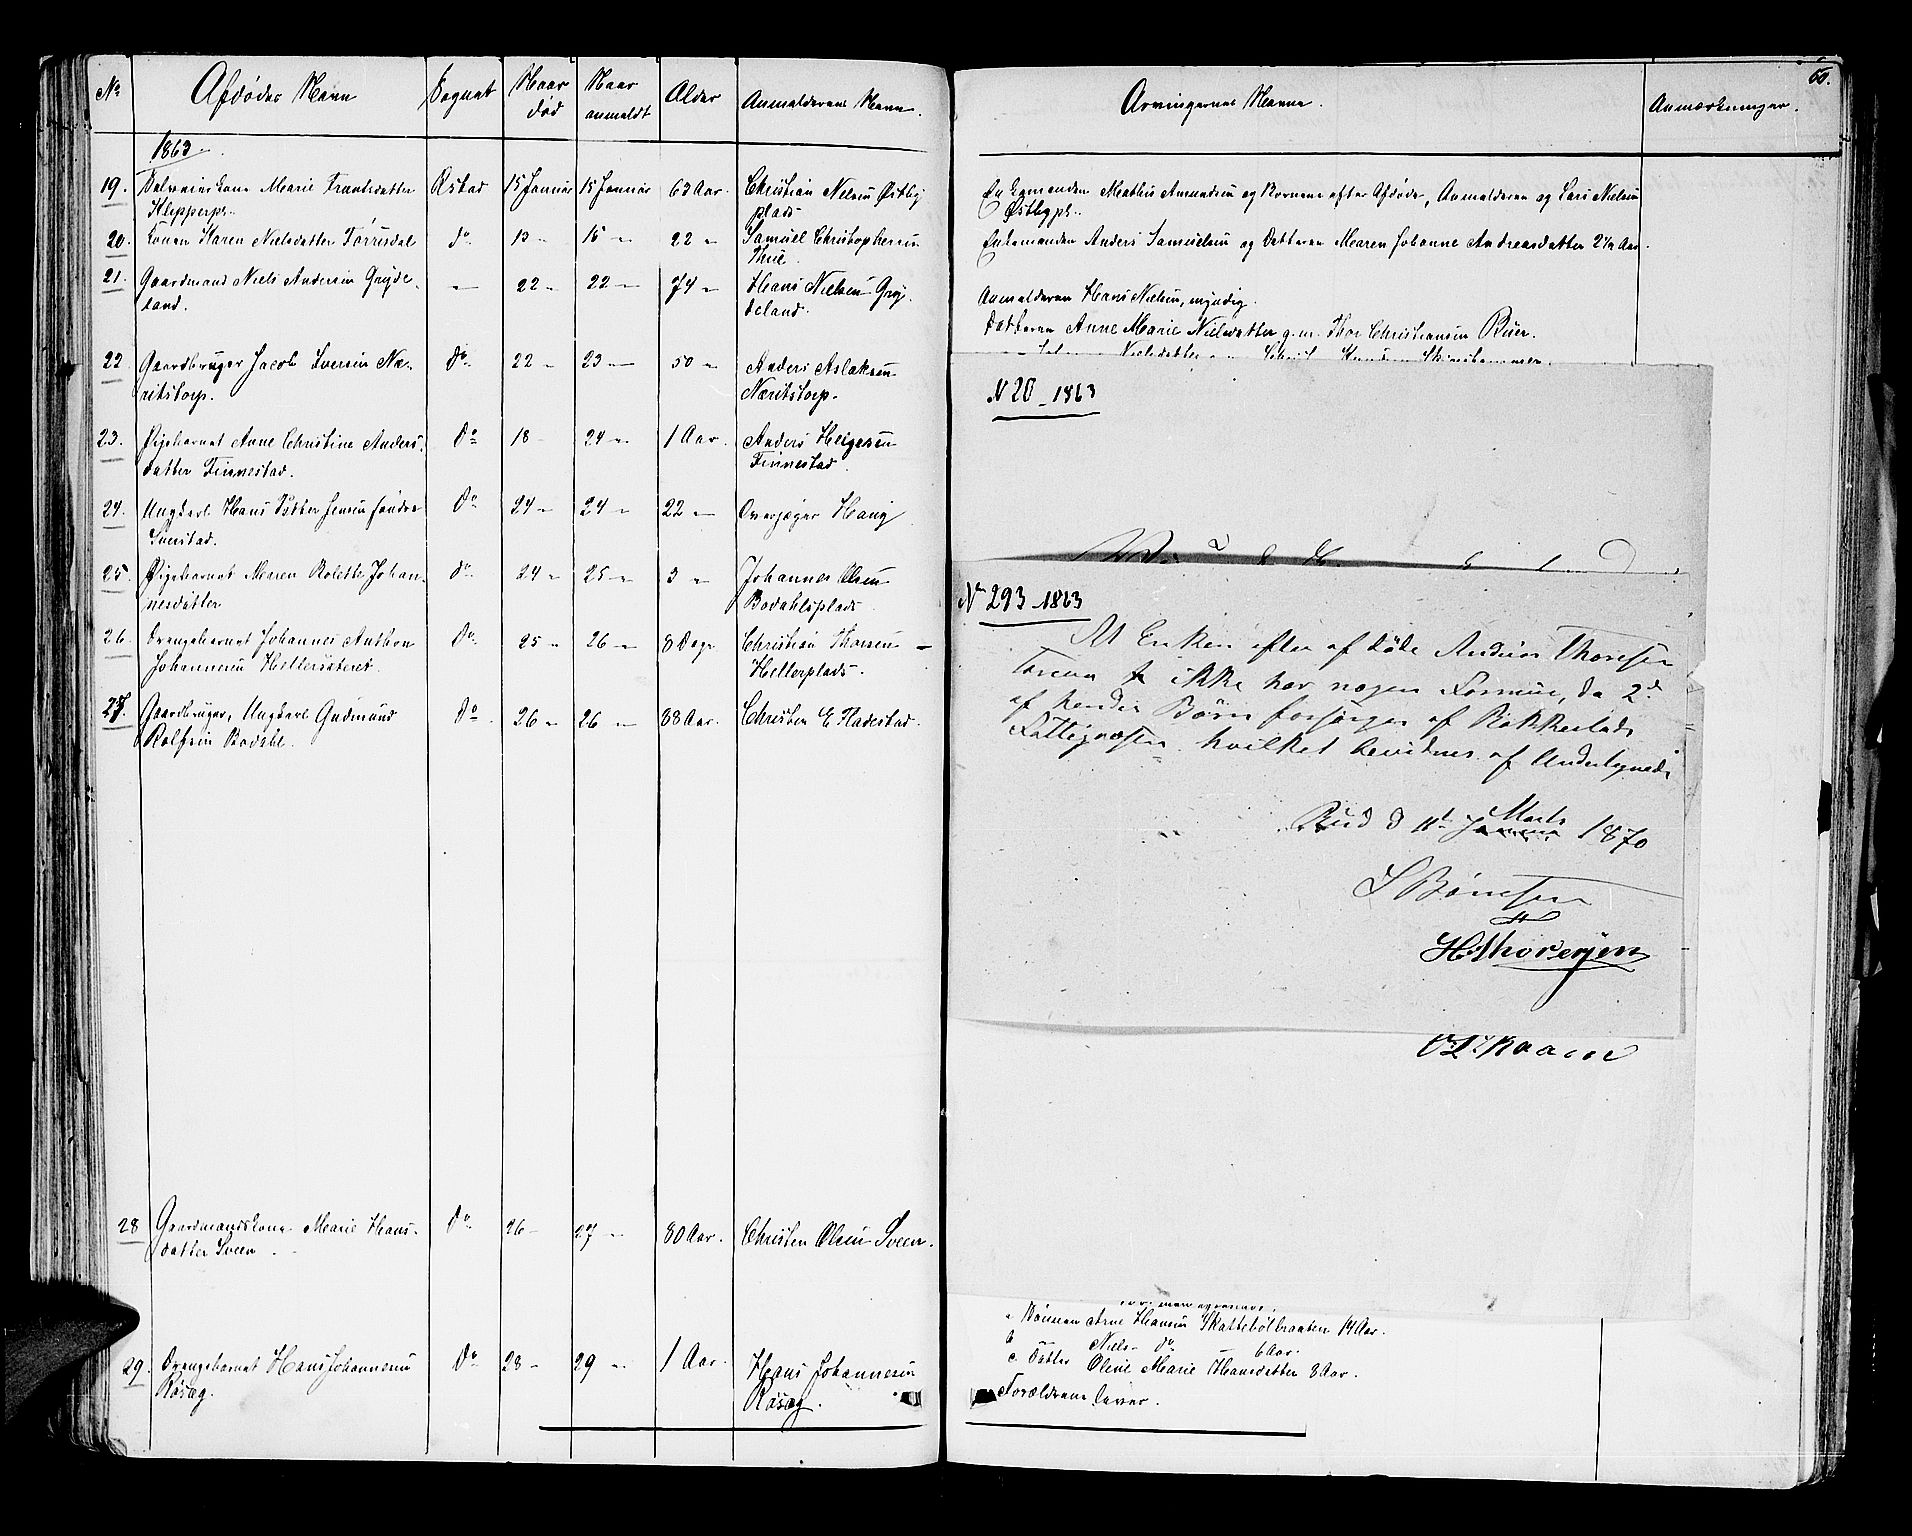 No Afdødes Navn Sognet Naar død Naar anmeldt Alder Anmelderens Navn.
1863
19. Selveierkone Marie Frantsdatter Østad 15 Januar 15 Januar 63 Aar. Christian Nielsen Østby
Klepperpl. plads
20. Konen Karen Nielsdatter Tørrisdal do 13 " 15 " 22 " Samuel Christophersen
Thue
21. Gaardmand Niels Andersen Gryde- — 22 " 22 " 74 " Hans Nielsen Gry-
land. deland.
22 Gaardbruger Jacob Iversen Næ- do 22 " 23 — 50 " Anders Aslaksen
ritstorp. Næritstorp.
23. Pigebarnet Anne Christine Anders- do 18 24 " 1 Aar. Anders Helgesen
datter Finnestad. Finnestad
24. Ungkarl Hans Petter Jensen Søndre do 24 " 24 " 22 " Overjæger Haug
Sønstad.
25. Pigebarnet Maren Bolette Johan- do 24 " 25 " 3 " Johannes Olsen
nesdatter Bodahlsplads
26. Drengebarnet Johannes Anthon do 25 " 26 " 8 Dage Christian Thorsen
Johannesen Hellersæteret Hellerplads.
27. Gaardbruger, Ungkarl Gudmund do 26 " 26 " 88 Aar. Christen E Hadestad.
Rolfsen Bodahl.
28 Gaardmandskone Marie Hans- do 26 — 27 " 80 Aar. Christen Olsen Sveen.
datter Sveen
29. Drengebarnet Hans Johannesen do 28 — 29 " 1 Aar. Hans Johannesen
Røsæg. Røsæg.
60.
Arvingernes Navne. Anmærkninger.
Enkemanden Mathis Amundsen og Børnene efter Afdøde, Anmelderen og Lars Nielsen
Østbypl.
Enkemanden Anders Samuelsen og Datteren Maren Johanne Andreasdatter 2 1/2 Aar.
Anmelderen Hans Nielsen, myndig.
Datteren Anne Marie Nielsdatter g.m. Thor Christiansen Buer.
N 20 - 1863
No 293 - 1863
At Enken efter afdøde Andreas Thoresen
ikke har nogen Formue, da 2de
af hendes Børn forsørges af Bakkerlads
Fattigvæsen, hvilket bevidnes af Undertegnede
Rud d 11te Marts 1870
S Børresen
HThoresen
Sønnen Arne Hansen Skattebølbraaten 14 Aar.
b Niels do 6 Aar.
c. Datter Oline Marie Hansdatter 8 Aar.
Forældrene lever.